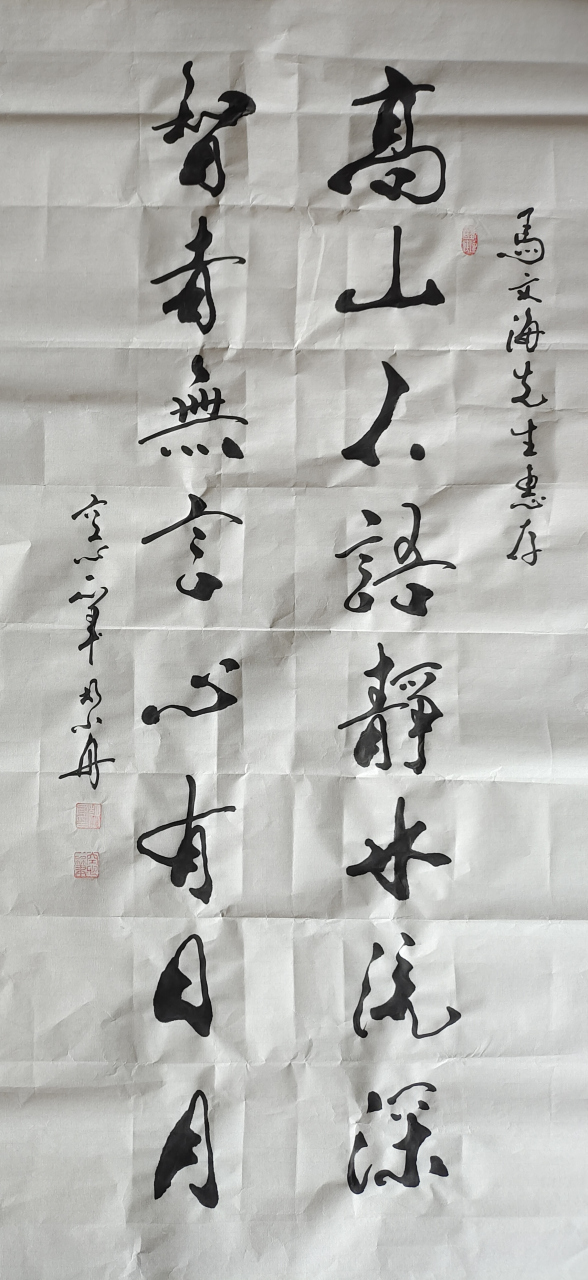 馬文海先生惠存
高山不語靜水流深
智者無言心有日月
空心不筆 胡小舟